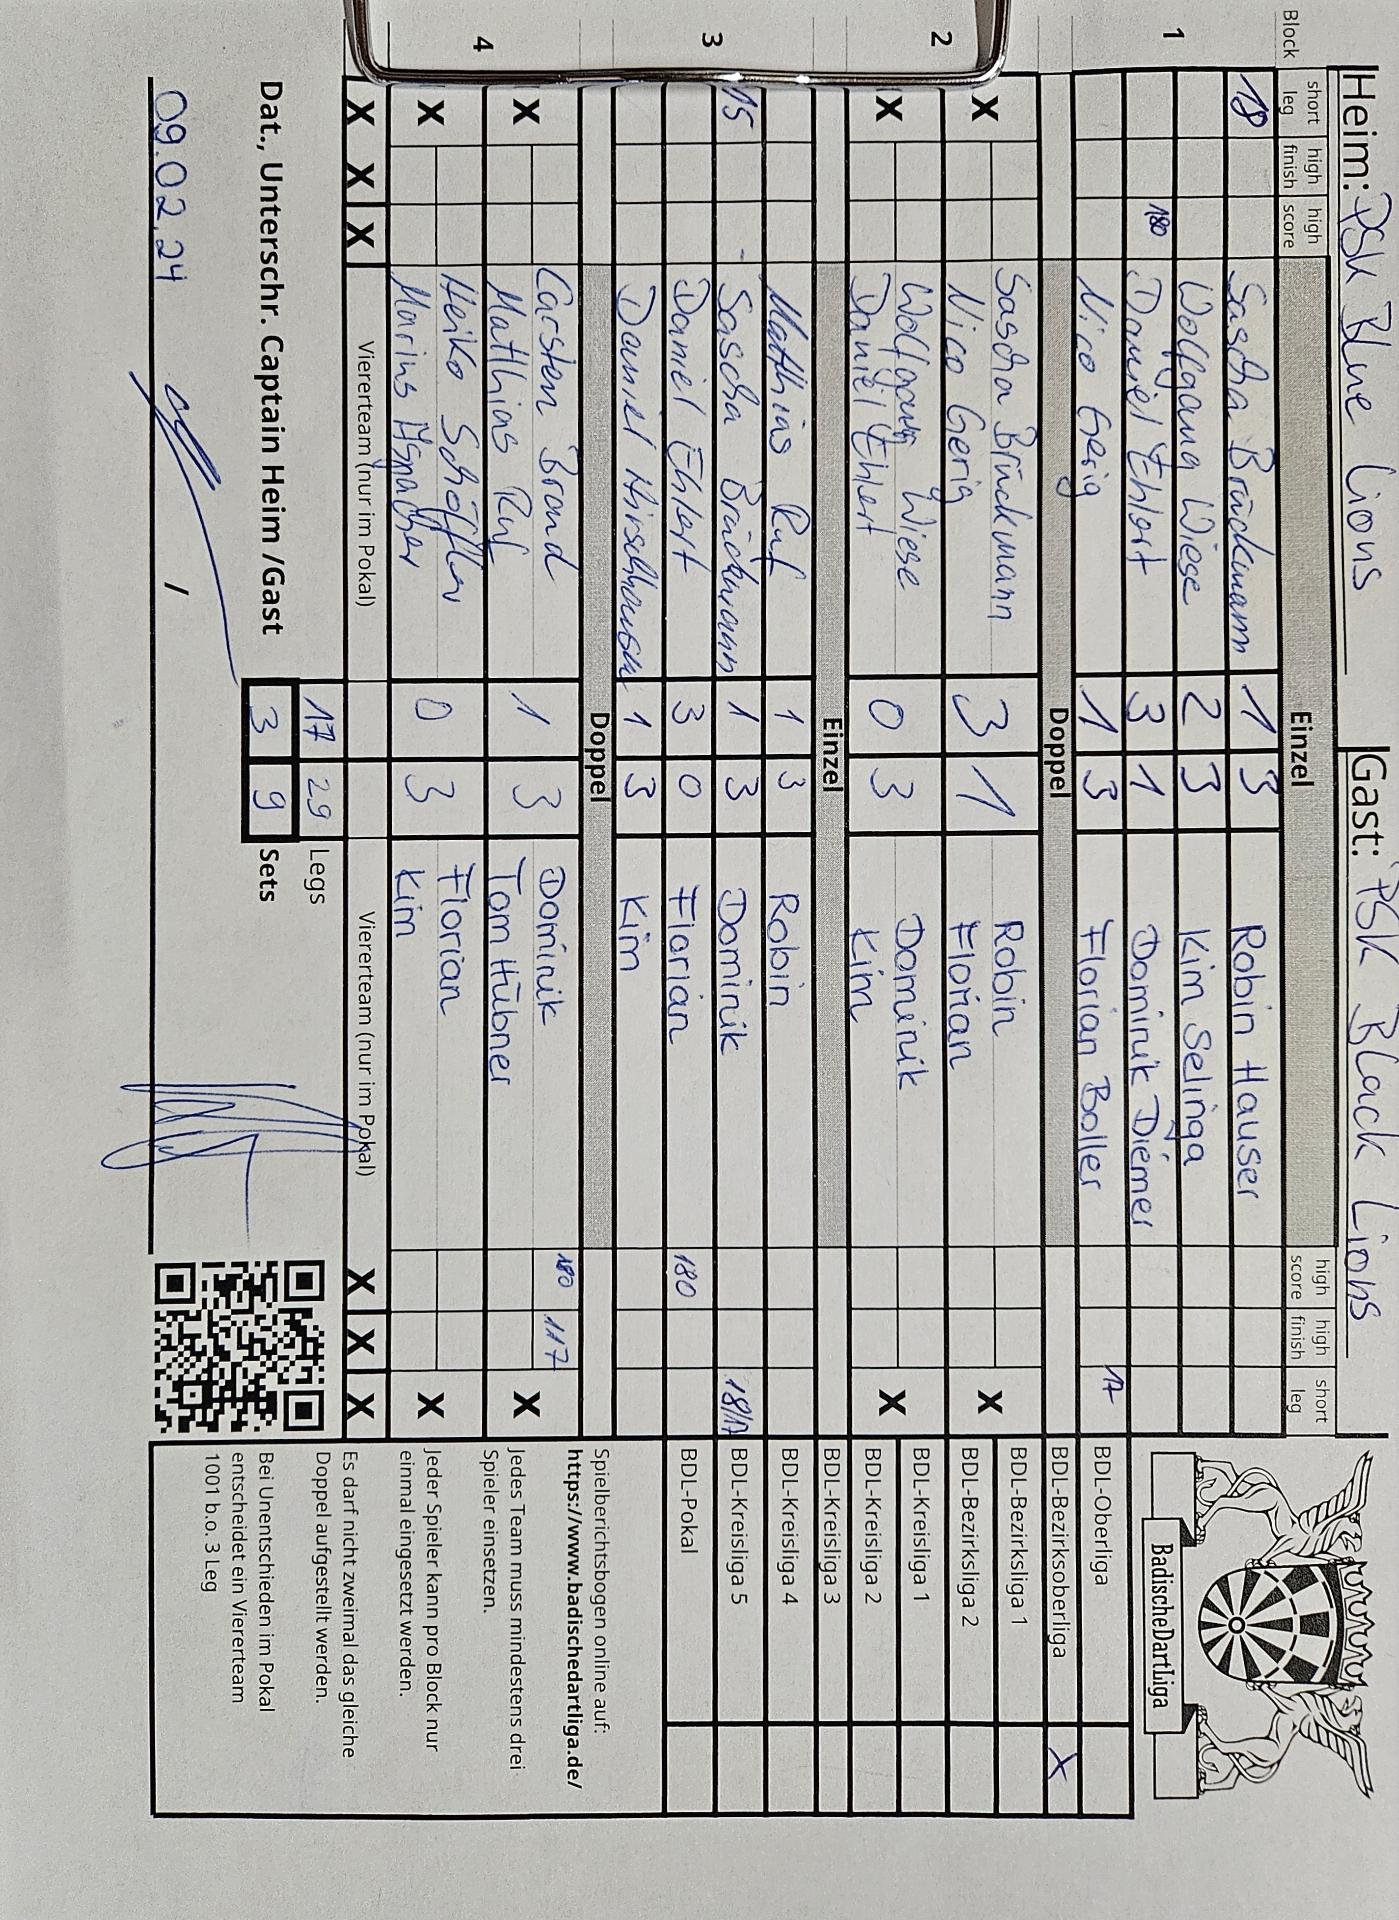 Heim: PSK Blue Lions Gast: PSK Black Lions
Block short leg high finish high score Einzel high score high finish short leg
1
18 Sascha Brückmann 1 3 Robin Hauser
Wolfgang Wiese 2 3 Kim Selinga
180 Daniel Ehlert 3 1 Dominik Diemer
Nico Gerig 1 3 Florian Boller 17
Doppel
2
Sascha Brückmann Robin
X Nico Gerig 3 1 Florian X
Wolfgang Wiese Dominik
X Daniel Ehlert 0 3 Kim X
Einzel
3
Matthias Ruf 1 3 Robin
15 Sascha Brückmann 1 3 Dominik 18/17
Daniel Ehlert 3 0 Florian 180
Daniel Hirschhausen 1 3 Kim
Doppel
4
Carsten Brand Dominik 180 117
X Matthias Ruf 1 3 Tom Hübner X
Heiko Schöffler Florian
X Marius Aspacher 0 3 Kim X
X X X Viererteam (nur im Pokal) Viererteam (nur im Pokal) X X X
17 29 Legs
Dat., Unterschr. Captain Heim /Gast 3 9 Sets
09.02.24 /
BadischeDartLiga
BDL-Oberliga
BDL-Bezirksoberliga X
BDL-Bezirksliga 1
BDL-Bezirksliga 2
BDL-Kreisliga 1
BDL-Kreisliga 2
BDL-Kreisliga 3
BDL-Kreisliga 4
BDL-Kreisliga 5
BDL-Pokal
Spielberichtsbogen online auf:
https://www.badischedartliga.de/
Jedes Team muss mindestens drei
Spieler einsetzen.
Jeder Spieler kann pro Block nur
einmal eingesetzt werden.
Es darf nicht zweimal das gleiche
Doppel aufgestellt werden.
Bei Unentschieden im Pokal
entscheidet ein Viererteam
1001 b.o. 3 Leg